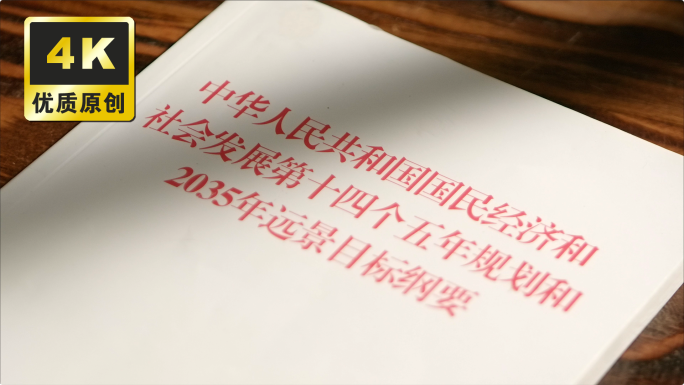 4K
优质原创
中华人民共和国国民经济和
社会发展第十四个五年规划和
2035年远景目标纲要